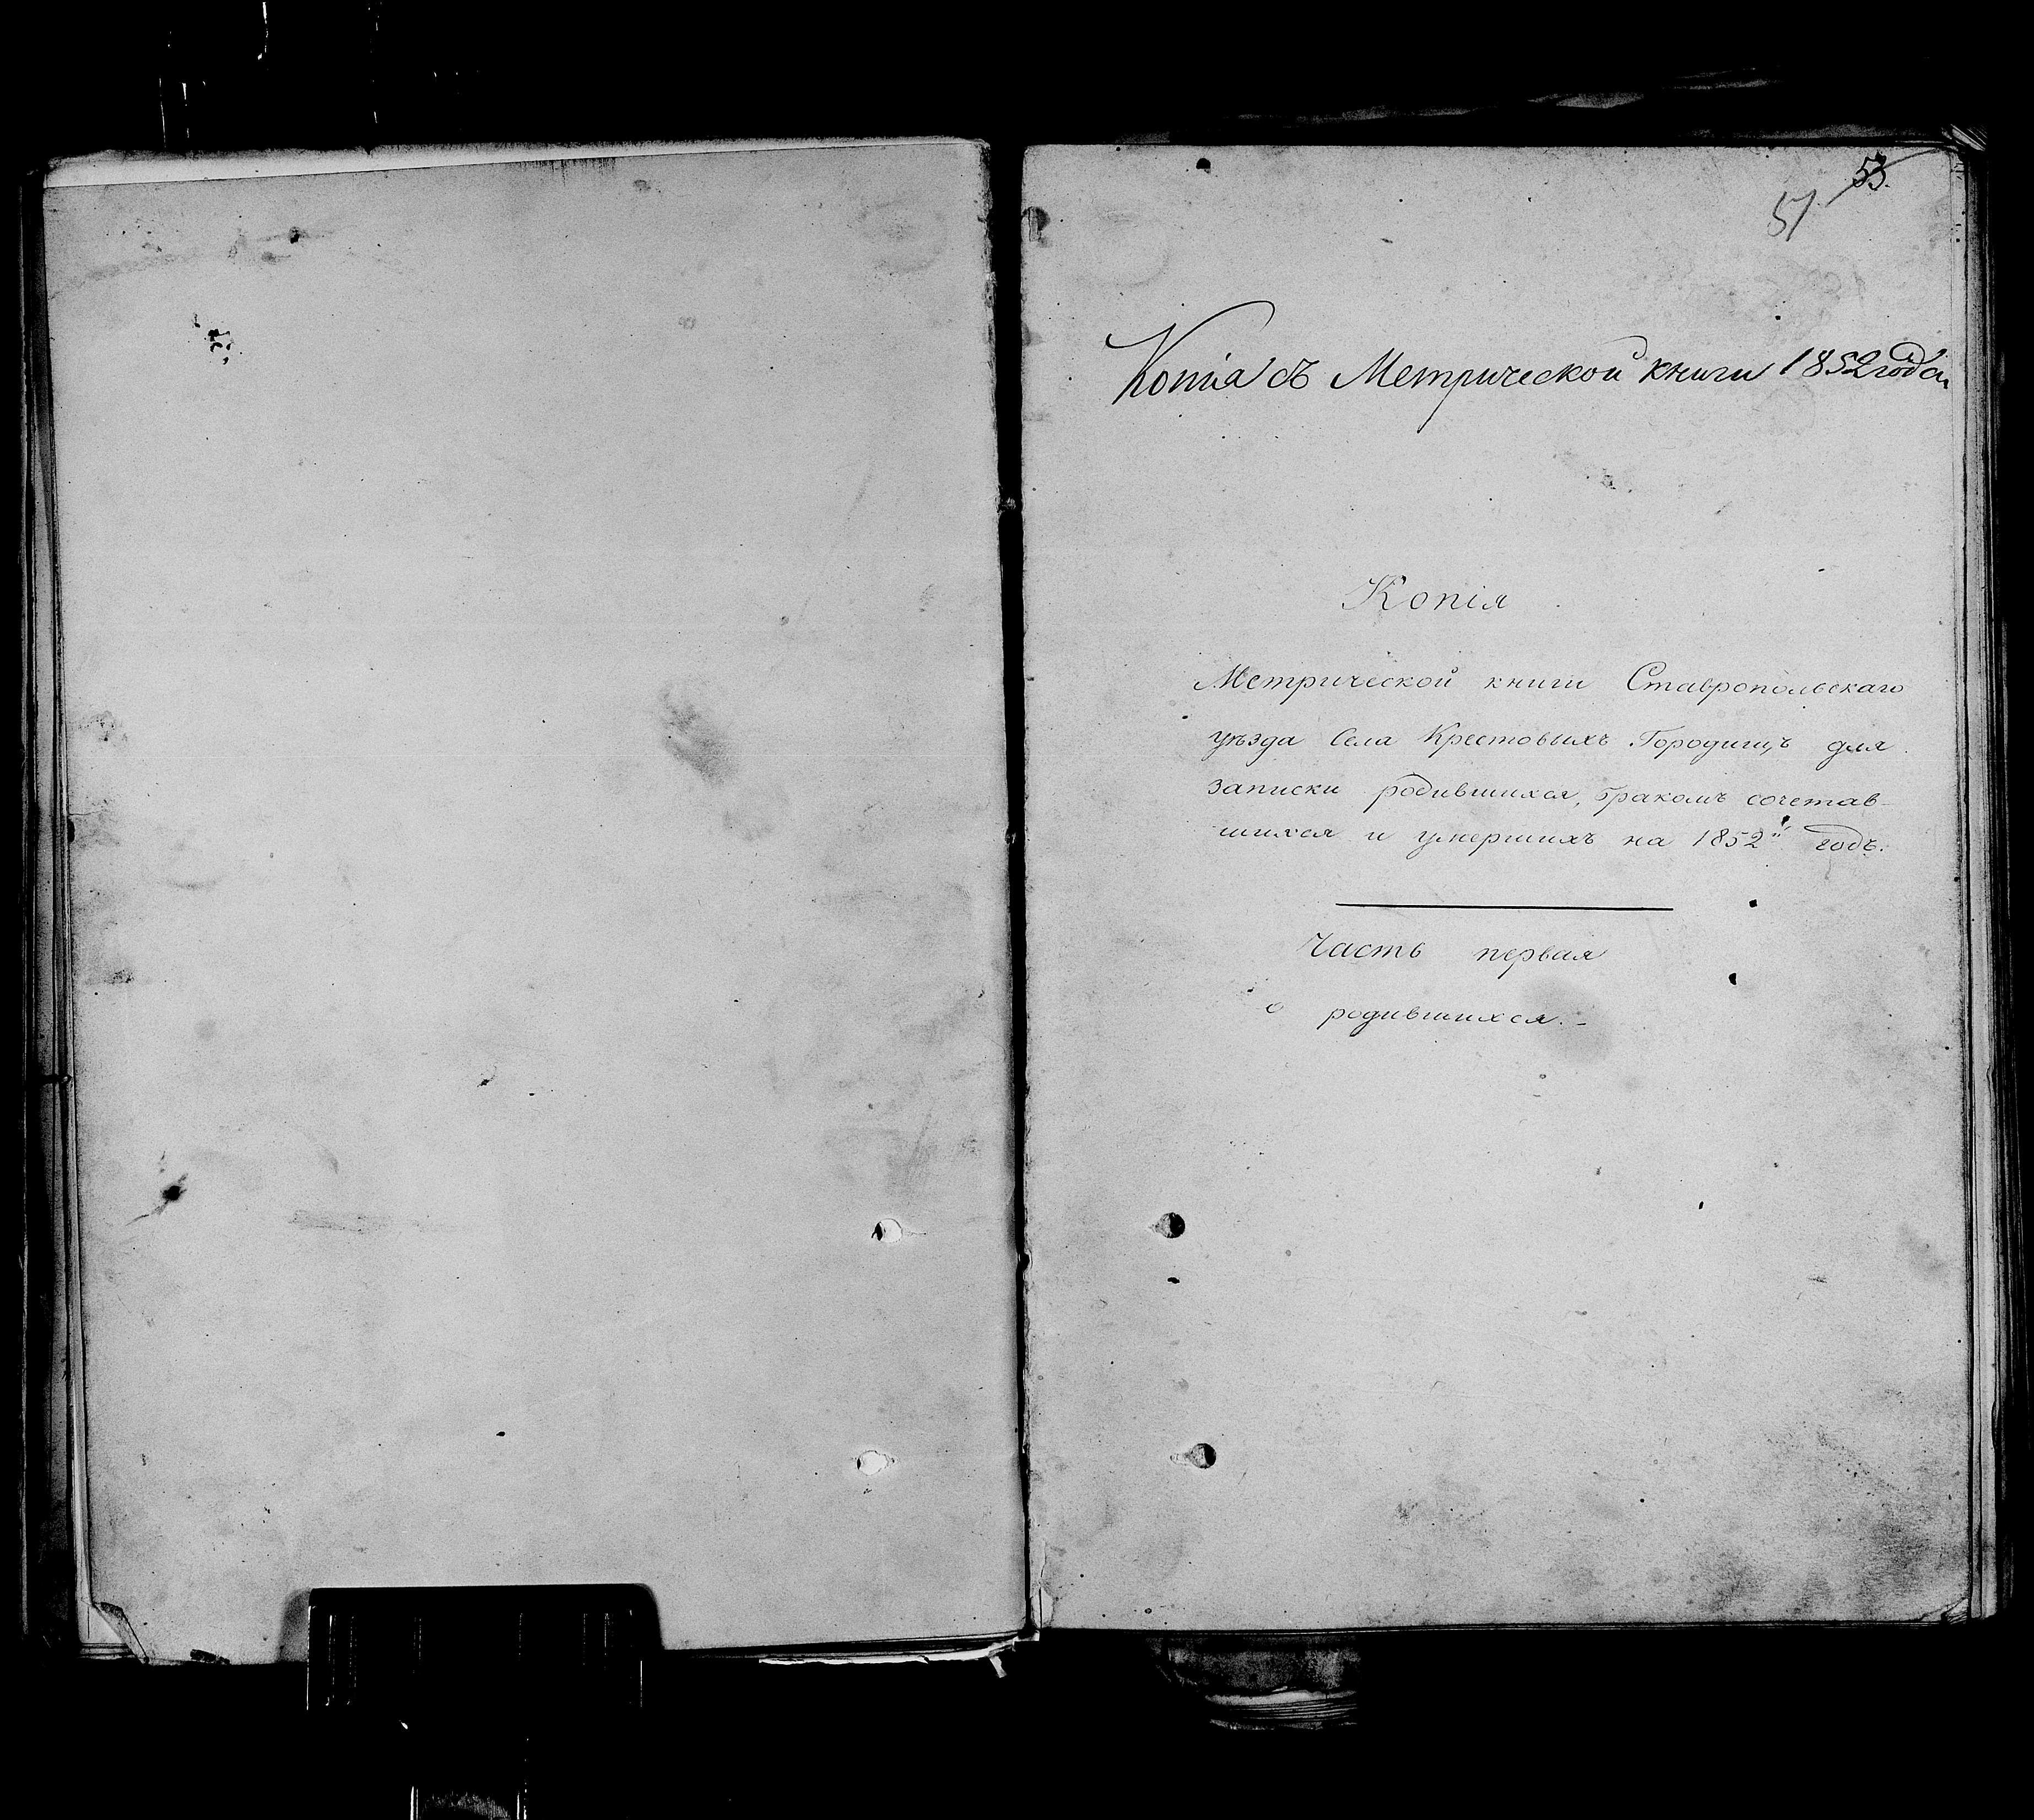 53.
51
Копія съ Метрической книги 1852 года
Копія
Метрической книги Ставропольскаго
уѣзда Села Крестовыхъ Городищъ для
записки родившихся, бракомъ сочетав-
шихся и умершихъ на 1852й годъ.
Часть первая
о родившихся.-